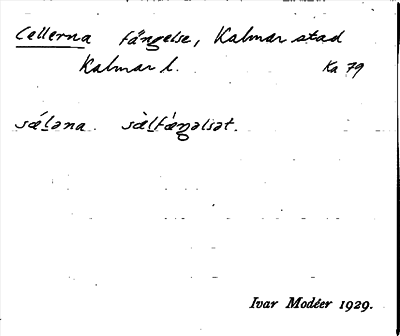 Cellerna fängelse, Kalmar stad
Kalmar l. Ka 79
sǽləna. sæ̀lfǽŋəlsət.
Ivar Modéer 1929.